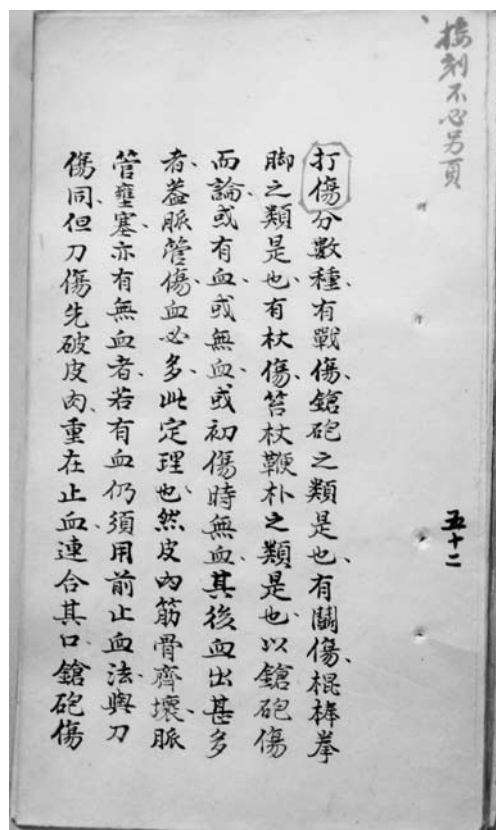 接刻不必另頁
五十二
打傷分數種、有戰傷、鎗砲之類是也、有鬭傷、棍棒拳
脚之類是也、有杖傷、笞杖鞭朴之類是也、以鎗砲傷
而論、或有血、或無血、或初傷時無血、其後血出甚多
者、葢脈管傷、血必多、此定理也、然皮肉筋骨齊壞、脈
管壅塞、亦有無血者、若有血仍須用前止血法、與刀
傷同、但刀傷先破皮肉、重在止血、連合其口、鎗砲傷